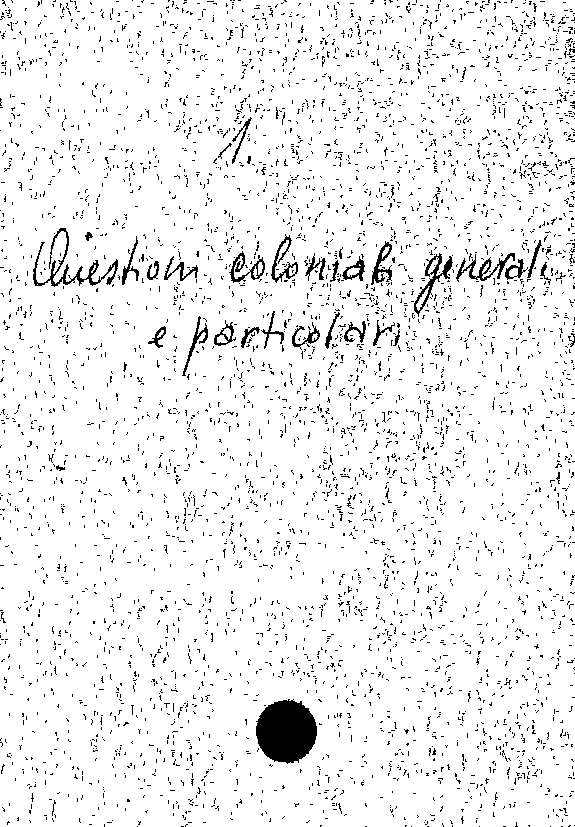 1.
Questioni coloniali generali
e particolari